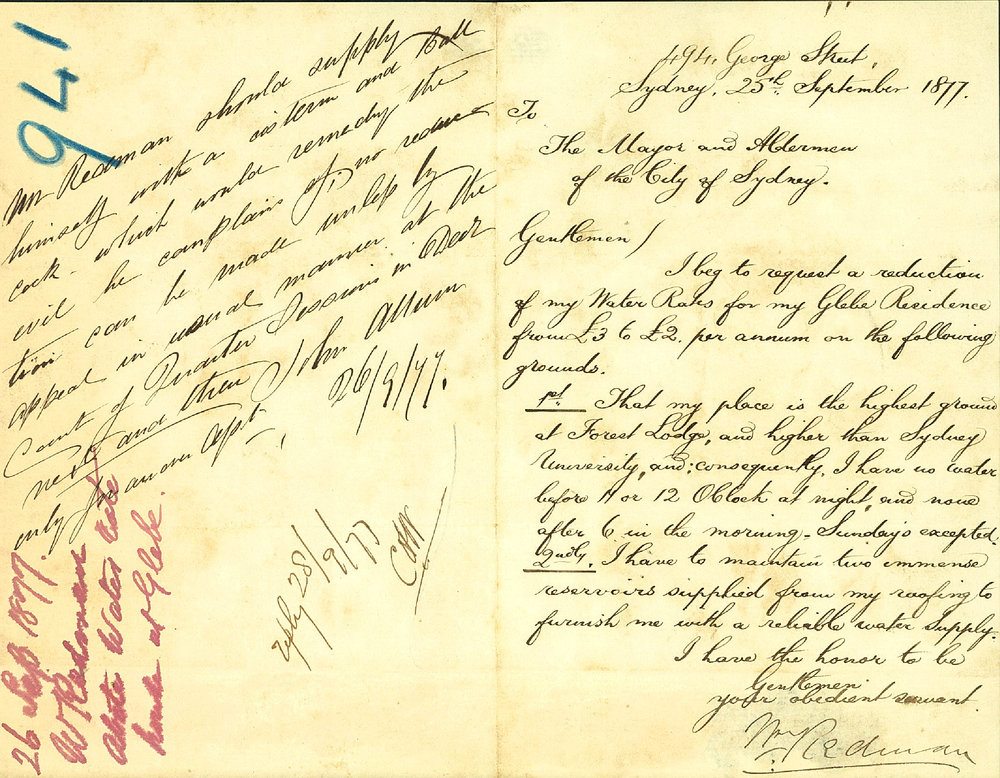 494, George Street,
Sydney, 25th. September 1877.
To
The Mayor and Aldermen
of the City of Sydney.
Gentlemen/
I beg to request a reduction
of my Water Rates for my Glebe Residence
from £3 to £2. per annum on the following
grounds.
1st. That my place is the highest ground
at Forest Lodge, and higher than Sydney
University, and; consequently, I have no water
before 11 or 12 O'Clock at night, and none
after 6 in the morning - Sunday's excepted.
2ndly. I have to maintain two immense
reservoirs supplied from my roofing to
furnish me with a reliable water Supply.
I have the honor to be
Gentlemen
your obedient servant.
Wm. Redman
941
Mr Redman should supply
himself with a cistern and Ball
cock - which would remedy the
evil he complains of, no reduc
tion can be made unless by
appeal in usual manner at the
Court of Quarter Sessions in Decr
next and then John Allum
only for an own 26/9/77.
reply 28/9/77
26 Sep 1877.
W Redman
Abate Water Rate
house at Glebe.